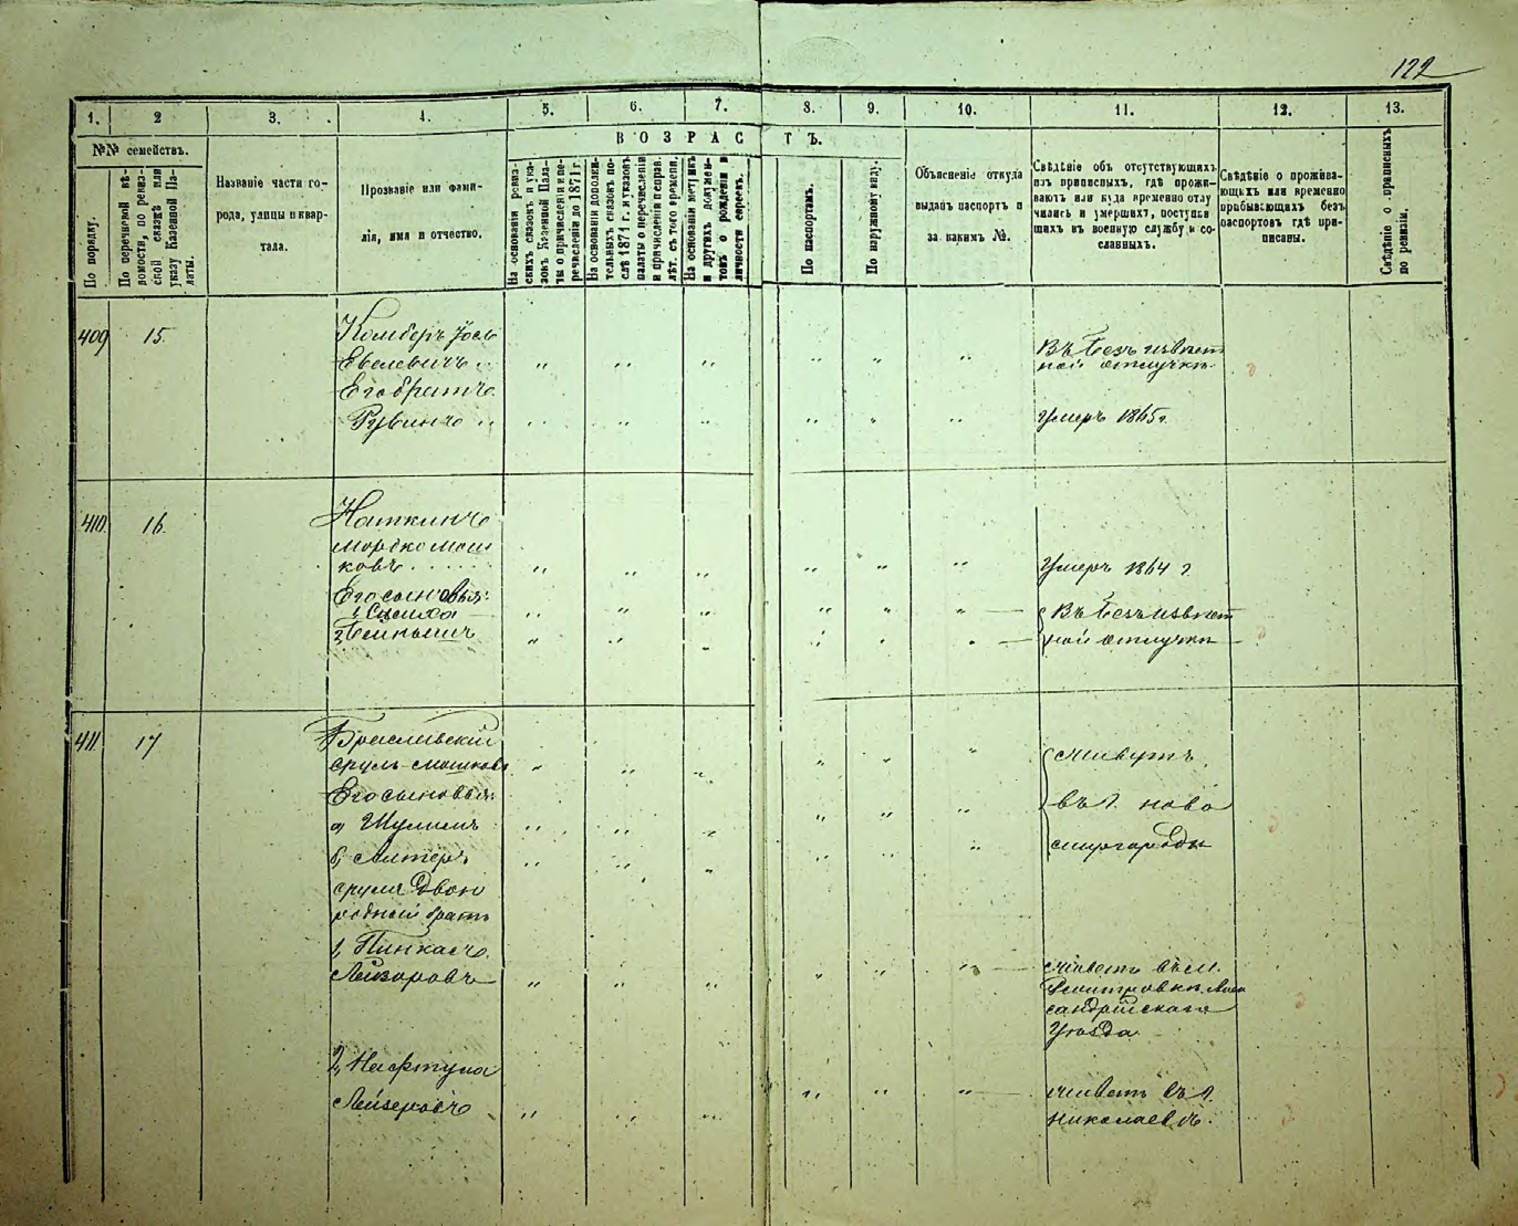 122
1. 2 3. 4. 5. 6. 7. 8. 9. 10. 11. 12. 13.
№№ семействъ.
ВОЗРАСТЪ.
По порядку.
По перечневой вѣ-
домости, по ревиз-
ской сказкѣ или
указу Казенной Па-
латы.
Названіе части го-
рода, улицы и квар-
тала.
Прозваніе или фами-
лія, имя и отчество.
На основаніи ревиз-
скихъ сказокъ и ука-
зовъ Казенной Пала-
ты о причисленіи и пе-
речисленіи до 1871 г.
На основаніи дополни-
тельныхъ сказокъ по-
слѣ 1871 г. и указовъ
палаты о перечисленіи
и причисленіи и справ.
лѣт. съ того времени.
На основаніи метрикъ
и другихъ докумен-
товъ о рожденіи и
личности евреевъ.
По паспортамъ.
По наружному виду.
Объясненіе откуда
выданъ паспортъ и
за какимъ №.
Свѣдѣніе объ отсутствующихъ
изъ приписныхъ, гдѣ прожи-
ваютъ или куда временно отлу
чились и умершихъ, поступив
шихъ въ военную службу и со-
сланныхъ.
Свѣдѣніе о прожива-
ющихъ или временно
прибывающихъ безъ
паспортовъ гдѣ при-
писаны.
Свѣдѣніе о приписныхъ
по ревизіи.
409 15. Комберъ Іось
Евелевичъ Въ безъизвѣст
ной отлучкѣ
Его братъ
Рувинъ Умеръ 1865 г.
410 16. Наткинъ
Мордко Мош
ковъ Умеръ 1864 г
Его сыновья:
1, Сцыиха Въ безъизвѣст
2, Бенъминъ ной отлучкѣ
411. 17 Браславскій Живутъ
Сруль Мошковъ
Его сыновья: въ г. Ново
а, Шулимъ
б, Алтеръ миргородѣ
Сруля Двою
родный братъ
1, Пинкасъ
Лейзоровъ Живетъ въ м.
Дмитровкѣ Алек
сандрійскаго
Уѣзда
2, Нафтула
Лейзеровъ Живетъ въ г.
Николаевѣ.